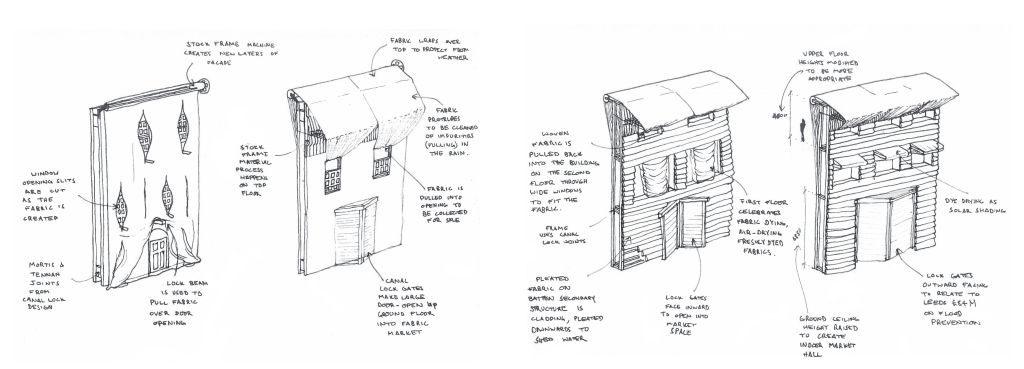 STOCK FRAME MACHINE
CREATES NEW LAYERS OF
FACADE
WINDOW
OPENING SLITS
ARE CUT
AS THE
FABRIC IS
CREATED
MORTIS &
TENNAN
JOINTS
FROM
CANAL LOCK
DESIGN
LOCK BEAM
IS USED TO
PULL FABRIC
OVER DOOR
OPENING
FABRIC WRAPS OVER
TOP TO PROTECT FROM
WEATHER
FABRIC
PROTRUDES
TO BE CLEANED
OF IMPURITIES
(FULLING) IN
THE RAIN.
STOCK
FRAME
MATERIAL
PROCESS
HAPPENS
ON TOP
FLOOR.
FABRIC IS
PULLED INTO
OPENING TO
BE COLLECTED
FOR SALE
CANAL
LOCK GATES
MAKE LARGE
DOOR - OPEN UP
GROUND FLOOR
INTO FABRIC
MARKET
WOVEN
FABRIC IS
PULLED BACK
INTO THE BUILDING
ON THE SECOND
FLOOR THROUGH
WIDE WINDOWS
TO FIT THE
FABRIC.
FRAME
USES CANAL
LOCK JOINTS
PLEATED
FABRIC ON
BATTEN SECONDARY
STRUCTURE IS
CLADDING, PLEATED
DOWNWARDS TO
SHED WATER
LOCK GATES
FACE INWARD
TO OPEN INTO
MARKET
SPACE
FIRST FLOOR
CELEBRATES
FABRIC DYING,
AIR-DRYING
FRESHLY DYED
FABRICS.
UPPER FLOOR
HEIGHTS MODIFIED
TO BE MORE
APPROPRIATE
DYE DRYING AS
SOLAR SHADING
LOCK GATES
OUTWARD FACING
TO RELATE TO
LEEDS
ON FLOOD
PREVENTION
GROUND CEILING
HEIGHT RAISED
TO CREATE
INDOOR MARKET
HALL